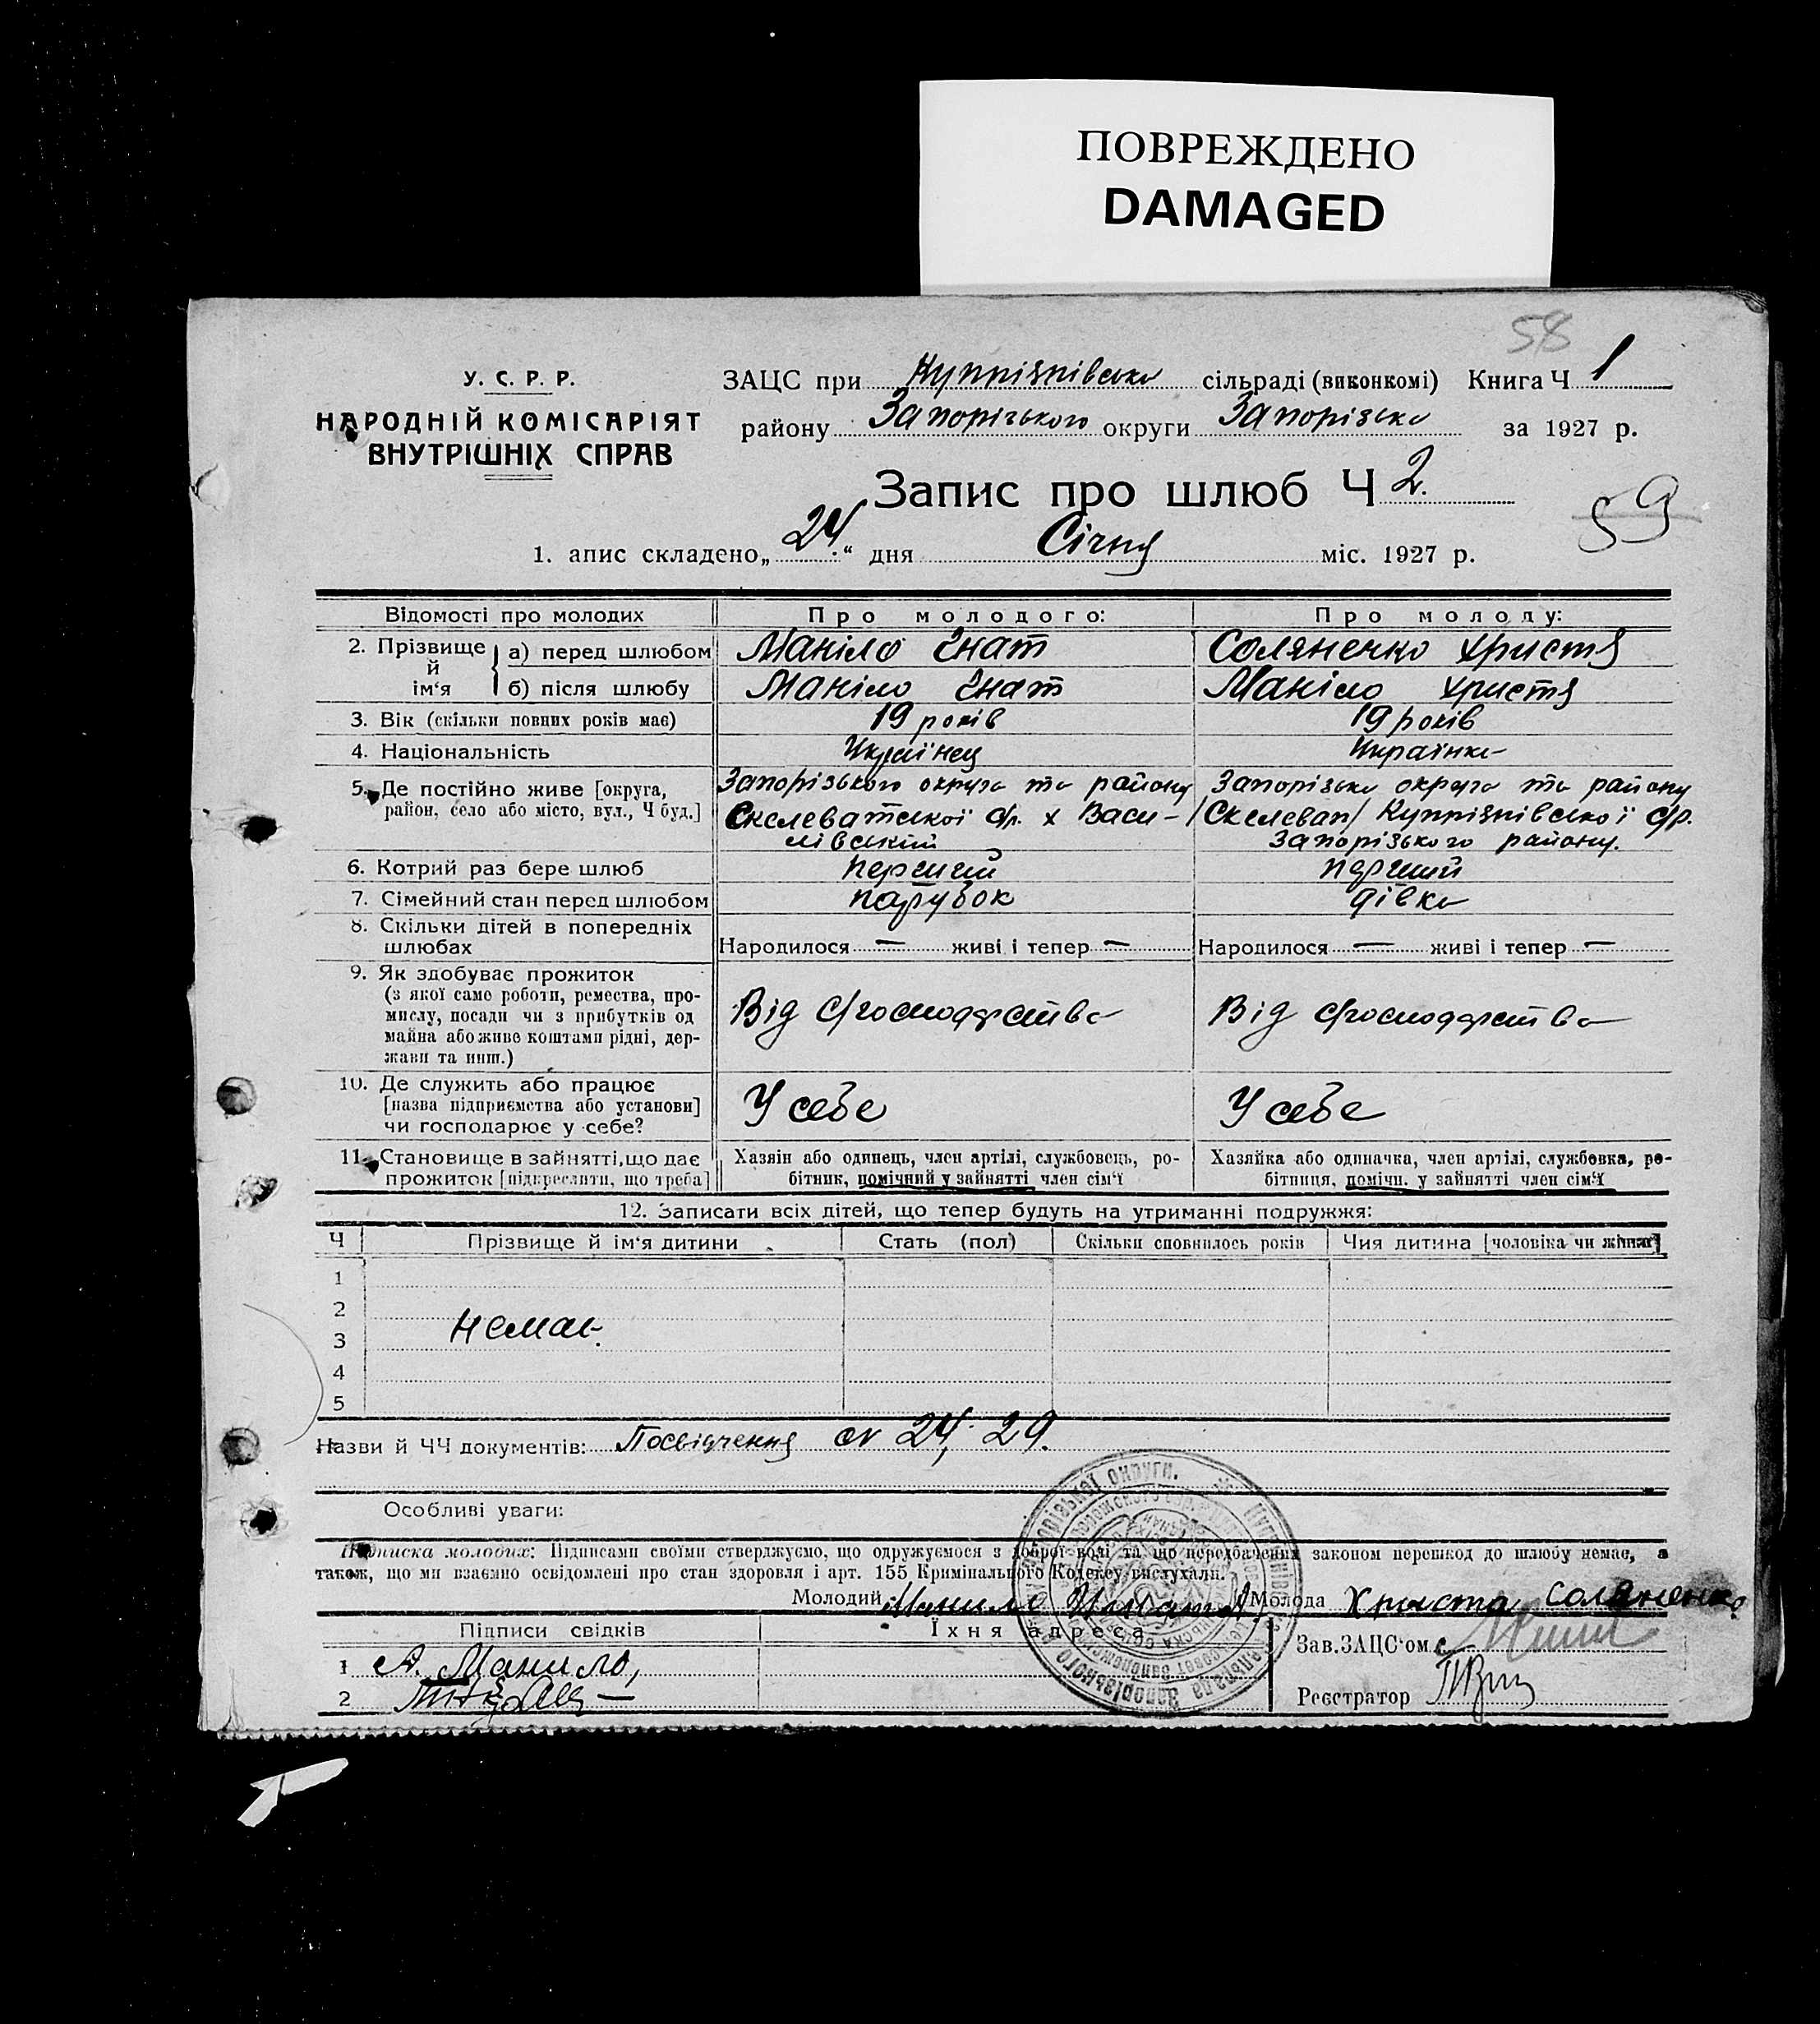 ПОВРЕЖДЕНО
DAMAGED
58
У. С. Р. Р.
НАРОДНІЙ КОМІСАРІЯТ
ВНУТРІШНІХ СПРАВ
ЗАЦС при Куппізпівсько сільраді (виконкомі) Книга Ч 1
району Запорізького округи Запорізько за 1927 р.
Запис про шлюб Ч 2.
59
1. апис складено „24“ дня Січня міс. 1927 р.
Відомості про молодих Про молодого: Про молоду:
2. Прізвище й ім‘я
а) перед шлюбом Маніло Гнат Соляненко Христя
б) після шлюбу Маніло Гнат Маніло Христя
3. Вік (скільки повних років має) 19 років 19 років
4. Національність Українец Українка
5. Де постійно живе [округа, Запорізького округа та району Запорізько округа та району
район, село або місто, вул., Ч буд.] Скелеватської с/р. х Васи- /Скелеват/ Куппізпівської с/р.
лівський Запорізького району.
6. Котрий раз бере шлюб перший перший
7. Сімейний стан перед шлюбом парубок дівка
8. Скільки дітей в попередніх
шлюбах Народилося — живі і тепер — Народилося — живі і тепер —
9. Як здобуває прожиток
(з якої саме роботи, ремества, про-
мислу, посади чи з прибутків од Від с/господарства Від с/господарства
майна або живе коштами рідні, дер-
жави та инш.)
10. Де служить або працює
[назва підприємства або установи] У себе У себе
чи господарює у себе?
11. Становище в зайнятті, що дає Хазяін або одинець, член артілі, службовець, ро- Хазяйка або одиначка, член артілі, службовка, ро-
прожиток [підкреслити, що треба] бітник, помічний у зайнятті член сім‘ї бітниця, помічн. у зайнятті член сім‘ї
12. Записати всіх дітей, що тепер будуть на утриманні подружжя:
Ч Прізвище й ім‘я дитини Стать (пол) Скільки сповнилось років Чия дитина [чоловіка чи жінки]
1
2
Немає.
3
4
5
Назви й ЧЧ документів: Посвідчення № 24, 29.
Особливі уваги:
Підписка молодих: Підписами своїми стверджуємо, що одружуємося з доброї волі та що передбачених законом перешкод до шлюбу немає, а
також, що ми взаємно освідомлені про стан здоровля і арт. 155 Кримінального Кодексу вислухали.
Молодий Манило Молода Христа Соляненко
Підписи свідків Їхня адреса Зав. ЗАЦС‘ом
1 А. Манило,
2 Реєстратор